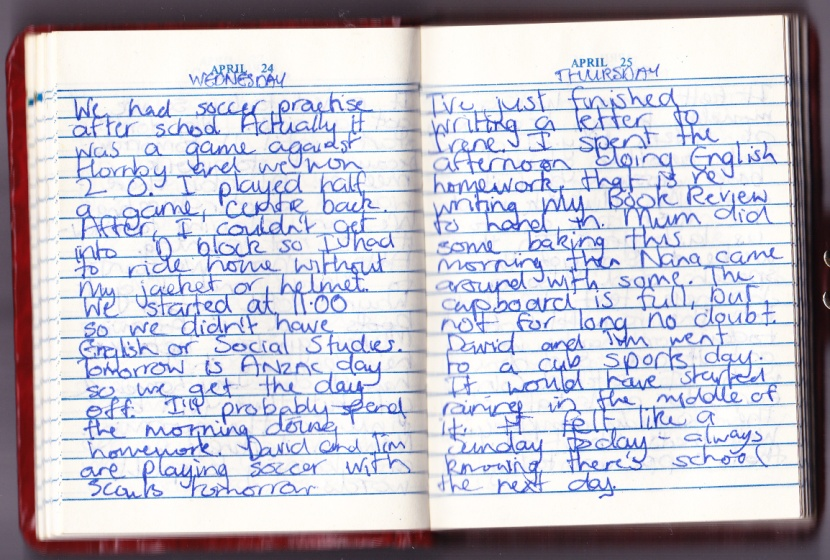 APRIL 24
WEDNESDAY
We had soccer practise
after school Actually it
was a game against
Hornby and we won
2 0. I played half
a game, centre back.
After, I couldn't get
into D block so I had
to ride home without
my jacket or helmet.
We started at 11.00
so we didn't have
English or Social Studies.
Tomorrow is ANZAC day
so we get the day
off. I'll probably spend
the morning doing
homework. David and Tim
are playing soccer with
Scouts tomorrow
APRIL 25
THURSDAY
I've just finished
writing a letter to
Irene. I spent the
afternoon doing English
homework, that is re
writing my Book Review
to hand in. Mum did
some baking this
morning then Nana came
around with some. The
cupboard is full, but
not for long no doubt.
David and Tim went
to a cub sports day.
It would have started
raining in the middle of
it. It felt like a
Sunday today - always
knowing there's school
the next day.